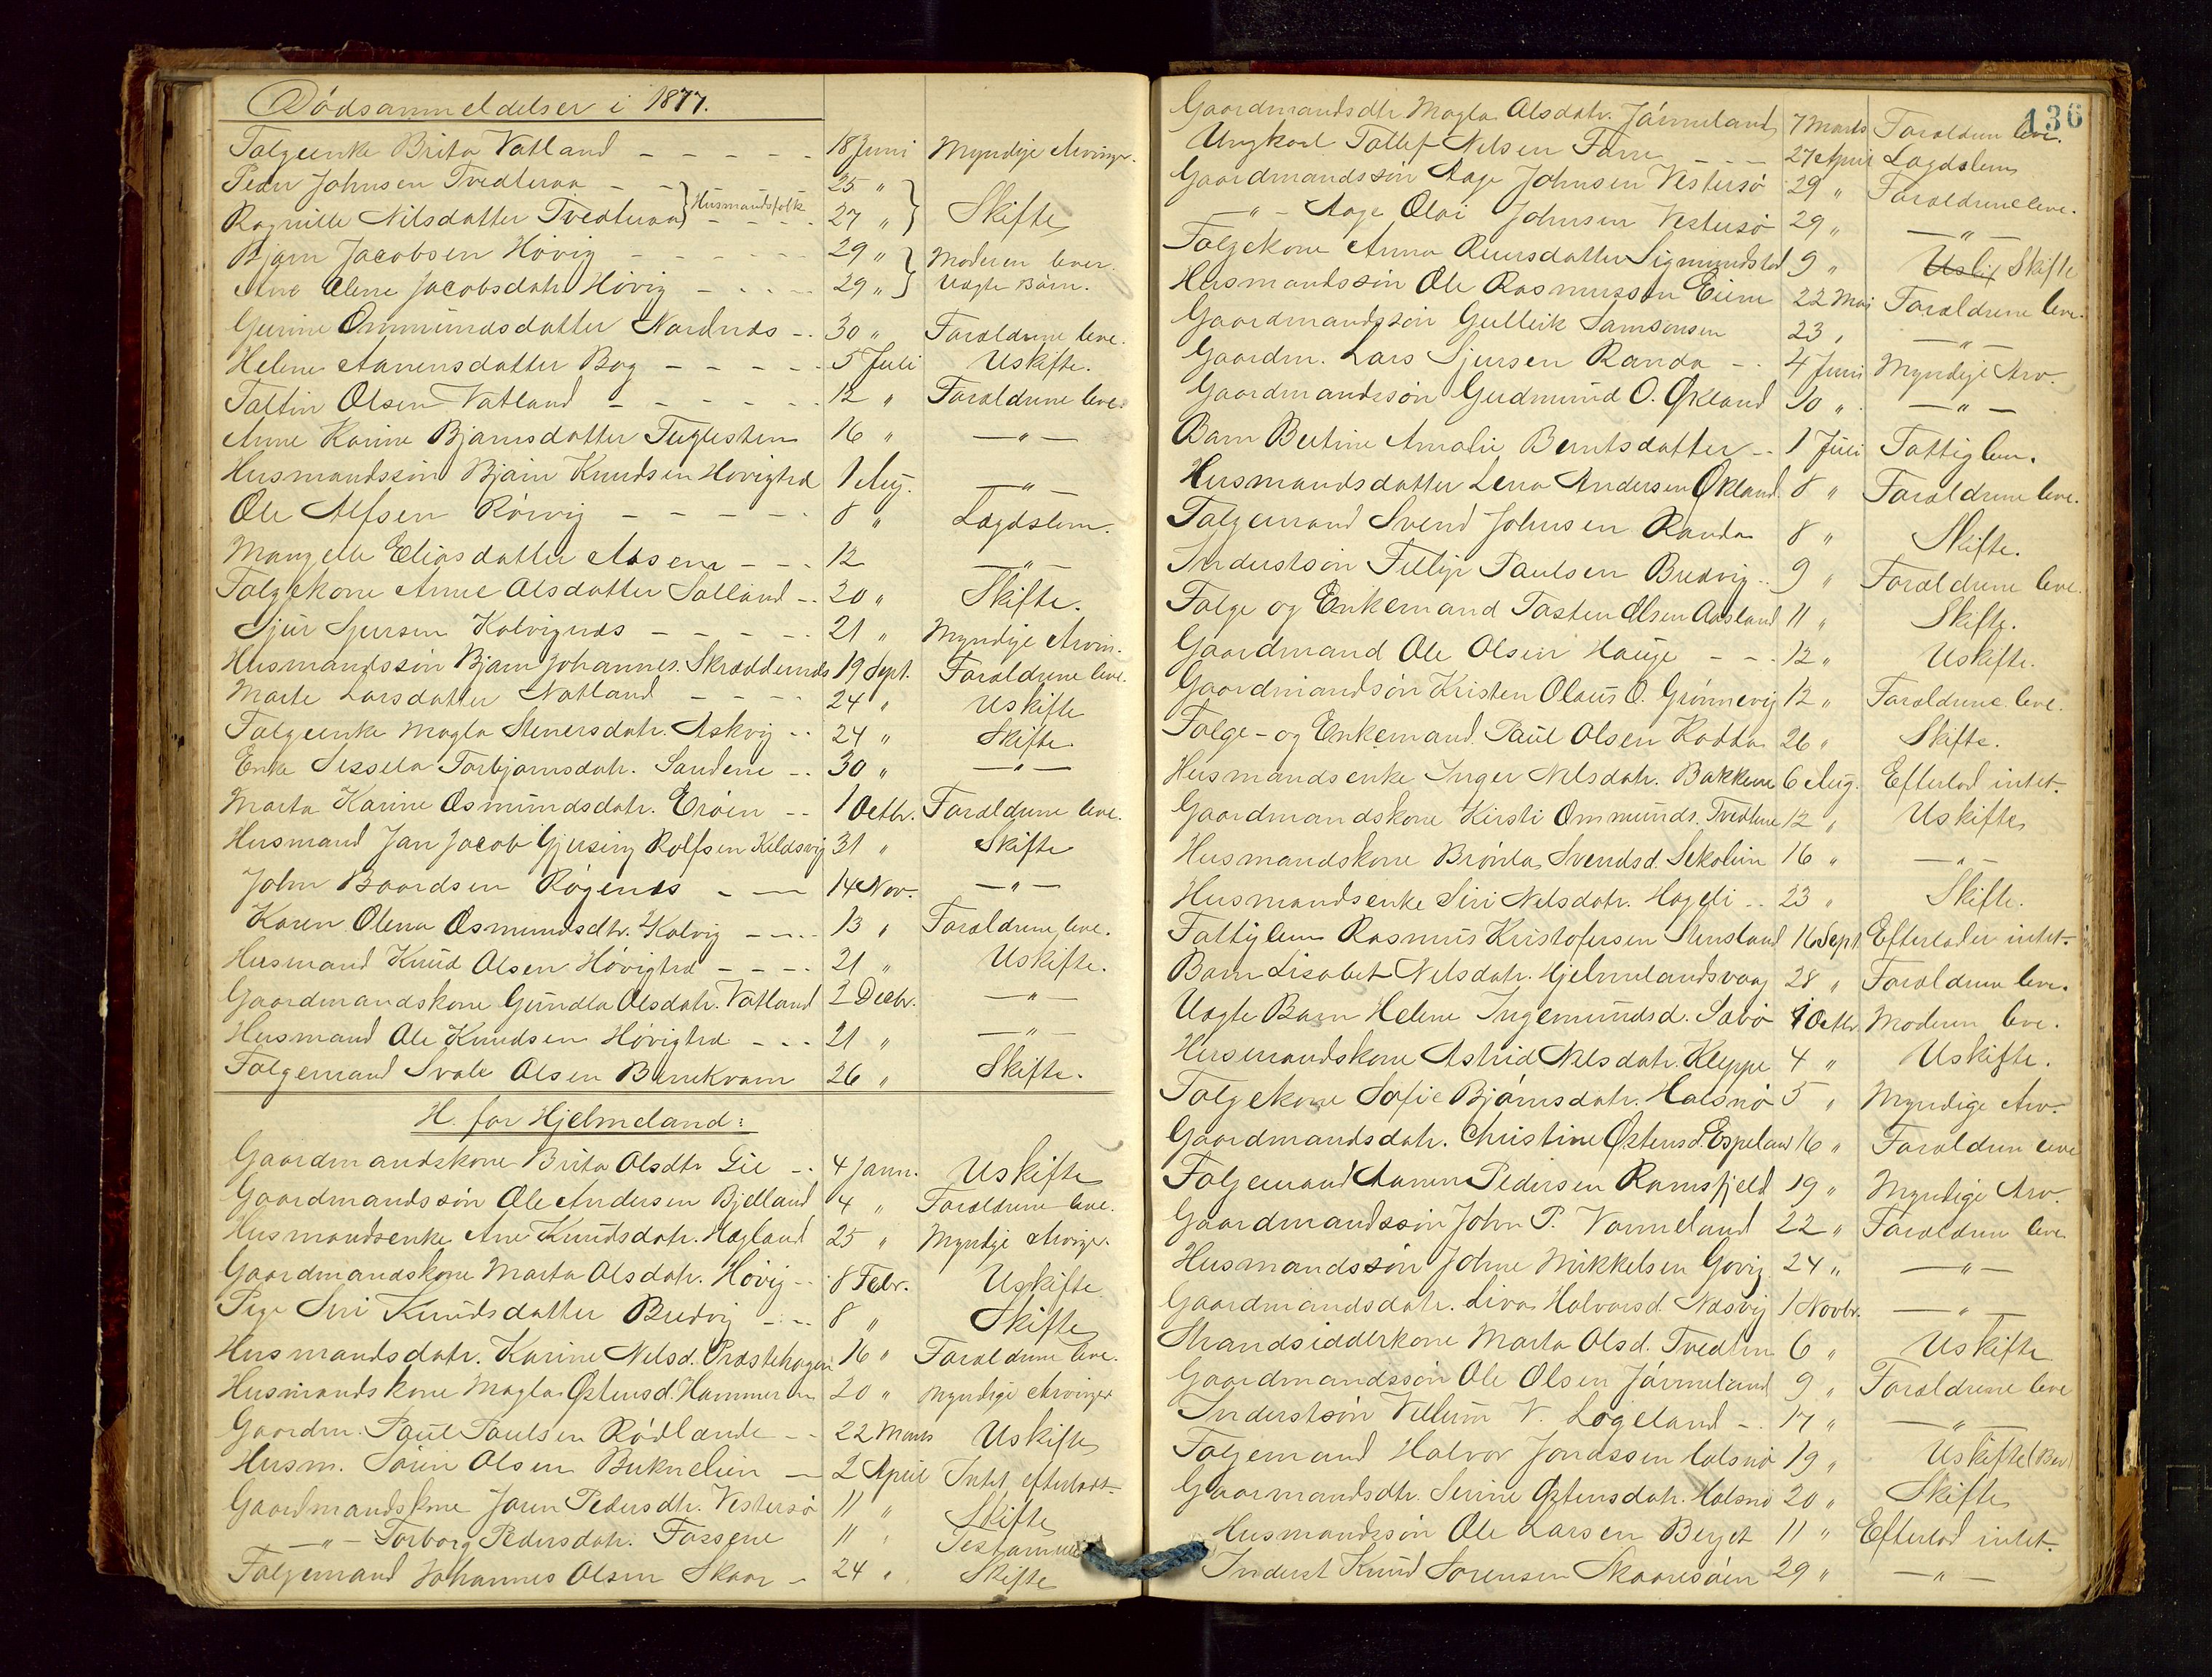 Dødsanmeldelser i 1877.
Folgeenke Brita Vatland – – – – – 18 Juni Myndige Arvinger.
Peder Johnsen Tvedteraa – – } Husmandsfolk 25 " }
Ragnille Nilsdatter Tvedteraa } – – – 27 " } Skifte
Bjørn Jacobsen Høvig – – – – – 29 " } Moderen lever.
Ane Elene Jacobsdatr Høvig – – – – 29 " } Uægte Børn.
Gurine Ommundsdatter Nordnæs – – 30 " Forældrene leve.
Helene Aanensdatter Bog – – – – – 5 Juli Uskifte.
Tallin Olsen Vatland – – – – – – 12 " Forældrene leve.
Anne Karine Bjørnsdatter Fuglesten 16 " – " –
Husmandssøn Bjørn Knudsen Høvigtræ 1 Aug. – " –
Ole Alfsen Rørvig – – – – – 8 " Lægdslem.
Mangele Eliasdatter Aasen – – – 12 – " –
Folgekone Anne Olsdatter Solland – – 20 " Skifte.
Sjur Sjursen Kolvignæs – – – – – 21 " Myndige Arvin.
Husmandssøn Bjørn Johannes. Skræddernæs 19 Sept. Forældrene leve.
Marte Larsdatter Natland – – – – 24 " Uskifte
Folgeenke Magla Stenersdatr. Askvig – – 24 " Skifte
Enke Sessela Torbjørnsdatr. Sandene – – 30 " – " –
Marta Karine Osmundsdatr. Erøen – – 1 Octbr. Forældrene leve.
Husmand Jan Jacob Gjusing Rolfsen Kildsvig 31 " Skifte
John Baardsen Røgenæs – – – 14 Nov. – " –
Karen Olena Osmundsdtr. Kolvig – – – – 13 " Forældrene leve.
Husmand Knud Olsen Høvigtræ – – – – 21 " Uskifte.
Gaardmandskone Gundla Olsdatr. Vatland 2 Decbr. – " –
Husmand Ole Knudsen Høvigtræ – – – 21 " – " –
Folgemand Svale Olsen Benekvam 26 " Skifte.
H. for Hjelmeland:
Gaardmandskone Brita Olsdtr Lie – – 4 Janr. Uskifte
Gaardmandssøn Ole Andersen Bjelland 4 " Forældrene leve.
Husmandsenke Ane Knudsdatr. Hægland 25 " Myndige Arvinge.
Gaardmandskone Marta Olsdatr. Høvig – – 8 Febr. Uskifte
Pige Siri Knudsdatter Bredvig – – – 8 " Skifte
Husmandsdatr. Karine Nelsd. Præstehagen 16 " Forældrene leve.
Husmandskone Magla Østensd. Hammeren 20 " Myndige Arvinger
Gaardm. Paul Paulsen Rødlande – – 22 Marts Uskifte
Husm. Søren Olsen – 2 April Intet efterladt.
Gaardmandskone Joren Pedersdtr. Vestersø 11 " Skifte
– " – Torborg Pedersdatr. Fossene 11 "
Folgemand Johannes Olsen Skaar – 24 " Skifte
136
Gaardmandsdtr Magla Olsdatr. Jørmeland 7 Marts Forældrene leve.
Ungkarl Tollef Nelsen Farre – – – 27 April Lægdslem
Gaardmandssøn Aage Johnsen Vestersø 29 " Forældrene leve.
– " – Aage Olai Johnsen Vestersø 29 " – " –
Folgekone Anna Sigmundstad 9 " Skifte
Husmandssøn Ole Rasmussen Eiene 22 Mai Forældrene leve.
Gaardmandssøn Gullik Samsonsen 23 " – " –
Gaardm. Lars Sjursen Randa – – 4 Juni Myndige Arv.
Gaardmandssøn Gudmund O. Økland 10 " – " –
Barn Bertine Amalie Berntsdatter – – 1 Juli Fattiglem.
Husmandsdatter Lena Andersen Økland 8 " Forældrene leve.
Folgemand Svend Johnsen Randa 8 " Skifte.
Inderstsøn Fillip Paulsen Bredvig – – 9 " Forældrene leve.
Folge og Enkemand Tosten Olsen Aasland 11 " Skifte.
Gaardmand Ole Olsen Hauge – – – 12 " Uskifte.
Gaardmandsøn Kristen Olaus O. Grønnevig 12 " Forældrene leve.
Folge- og Enkemand Paul Olsen Kodda 26 " Skifte.
Husmandsenke Inger Nelsdatr. Bakkene 6 Aug. Efterlod intet.
Gaardmandskone Kirsti Ommunds. Tvedtene 12 " Uskifte
Husmandskone Brønla Svendsd. 16 " – " –
Husmandsenke Siri Nelsdatr. Hageli – – 23 " Skifte.
Fattiglem Rasmus Kristofersen Stensland 16 Sept. Efterlader intet.
Barn Lisabet Nelsdatr. Hjelmelandsvaag 28 " Forældrene leve.
Uægte Barn Helene Ingemundsd. Sabø 1 Octbr. Moderen leve.
Husmandskone Astrid Nelsdatr. Kleppe 4 " Uskifte.
Folgekone Sofie Bjørnsdatr. Halsnø 5 " Myndige Arv.
Gaardmandsdatr. Christine Østensd. Espeland 16 " Forældrene leve
Folgemand Aanen Pedersen Ramsfjeld 19 " Myndige Arv.
Gaardmandssøn John P. Vormeland 22 " Forældrene leve
Husmandssøn Johne Mikkelsen Govig 24 " – " –
Gaardmandsdatr. Liva Halvorsd. Næsvig 1 Novbr. – " –
Strandsidderkone Marta Olsd. Tvedten 6 " Uskifte
Gaardmandssøn Ole Olsen Jørmeland 9 " Forældrene leve
Inderstsøn Vellum V. Logeland – – 17 " – " –
Folgemand Halvor Jonassen Halsnø 19 " Uskifte (Bev.)
Gaarmandsdtr. Serine Østensdatr. Halsnø 20 " Skifte
Husmandssøn Ole Larsen Berget 11 " Efterlod intet.
Inderst Knud Sørensen 29 " – " –